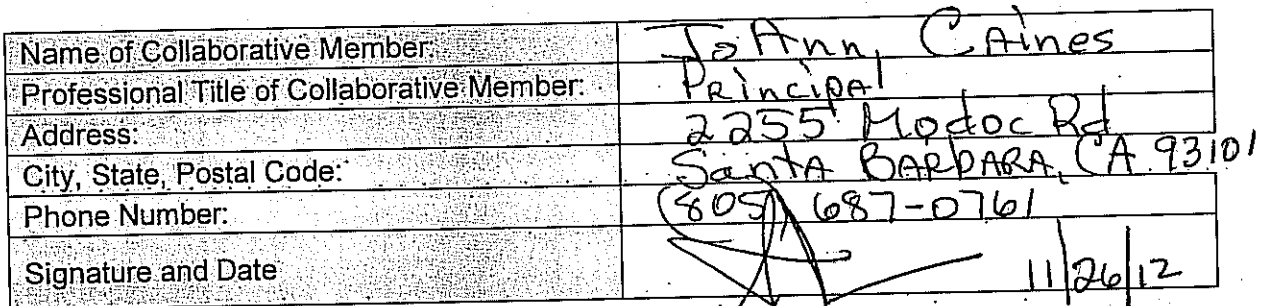 Name of Collaborative Member: JoAnn Caines
Professional Title of Collaborative Member: Principal
Address: 2255 Modoc Rd
City, State, Postal Code: Santa Barbara, CA 93101
Phone Number: (805) 687-0761
Signature and Date 11/26/12